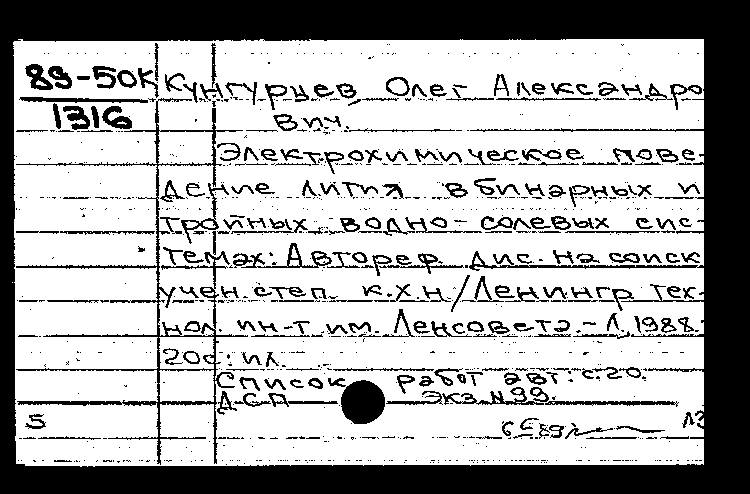 89-50К Кунгурцев Олег Александро
1316 вич.
Электрохимическое пове-
дение лития в бинарных и
тройных водно-солевых сис-
темах: Автореф. дис. на соиск.
учен. степ. к.х.н/Ленингр. тех-
нол. ин-т им. Ленсовета.-Л, 1988.-
20с: ил.
Список работ авт: с.20.
Д-С-П Экз. №99.
5